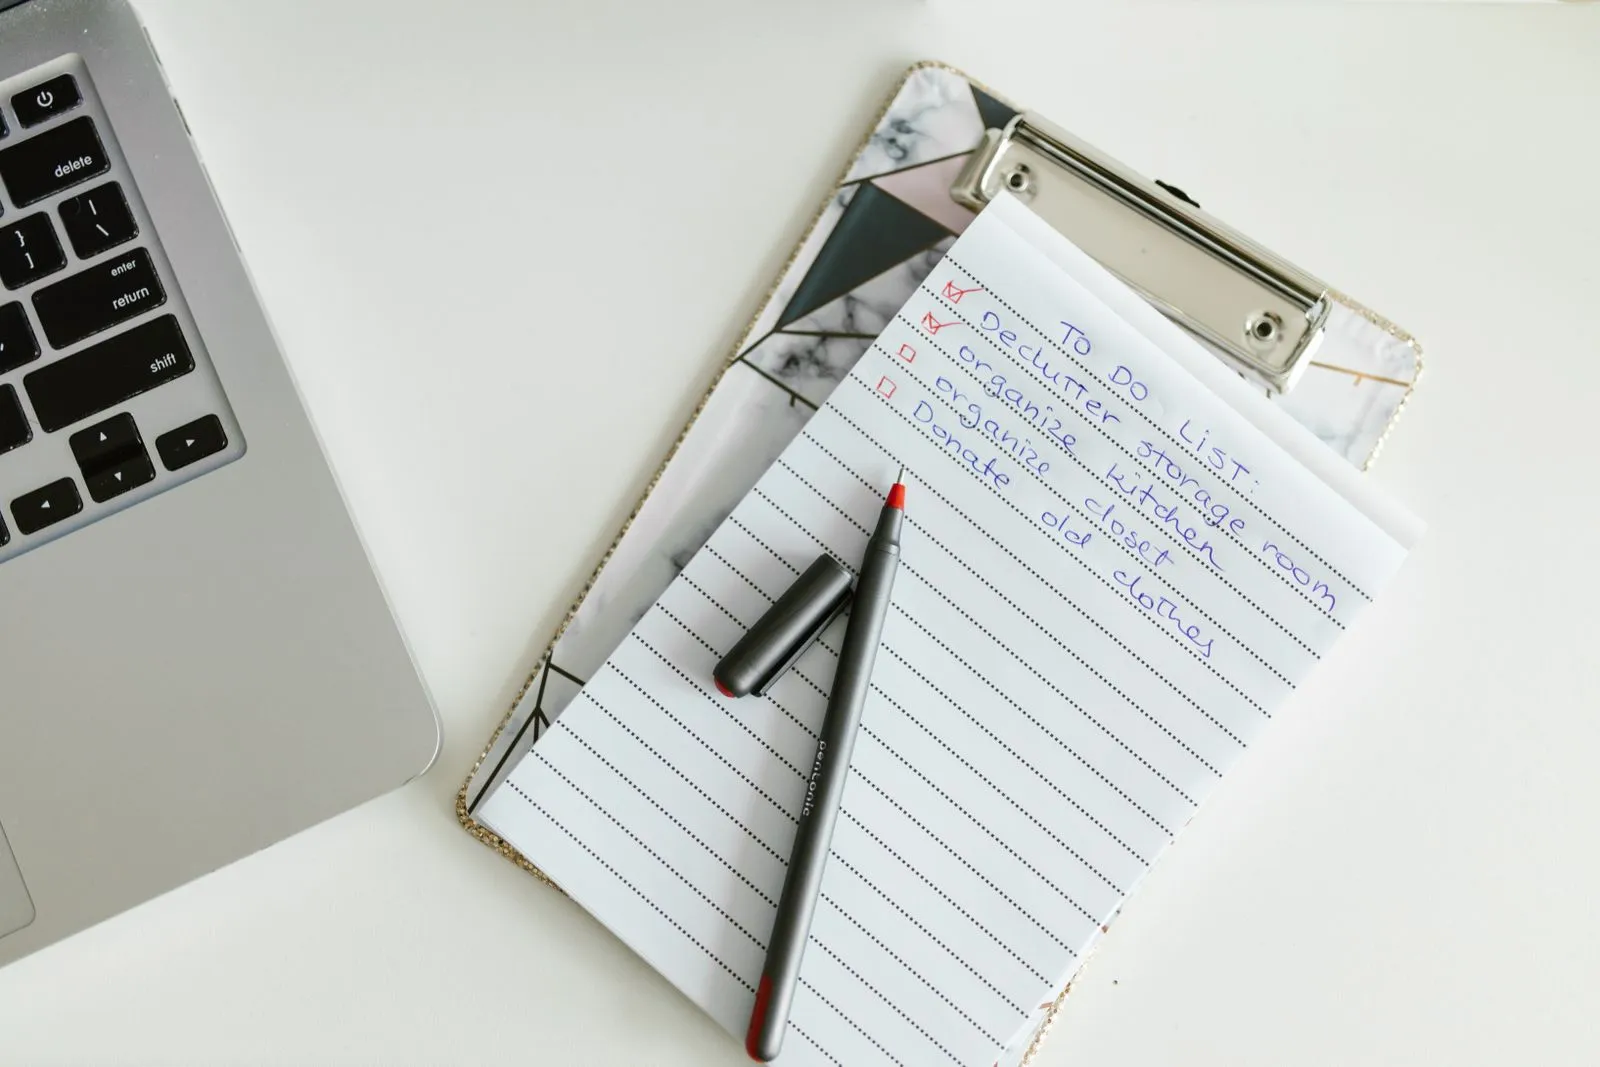 delete
}
]
|
\
enter
return
shift
TO DO LIST:
Declutter storage room
organize kitchen
organize closet
Donate old clothes
pentonic